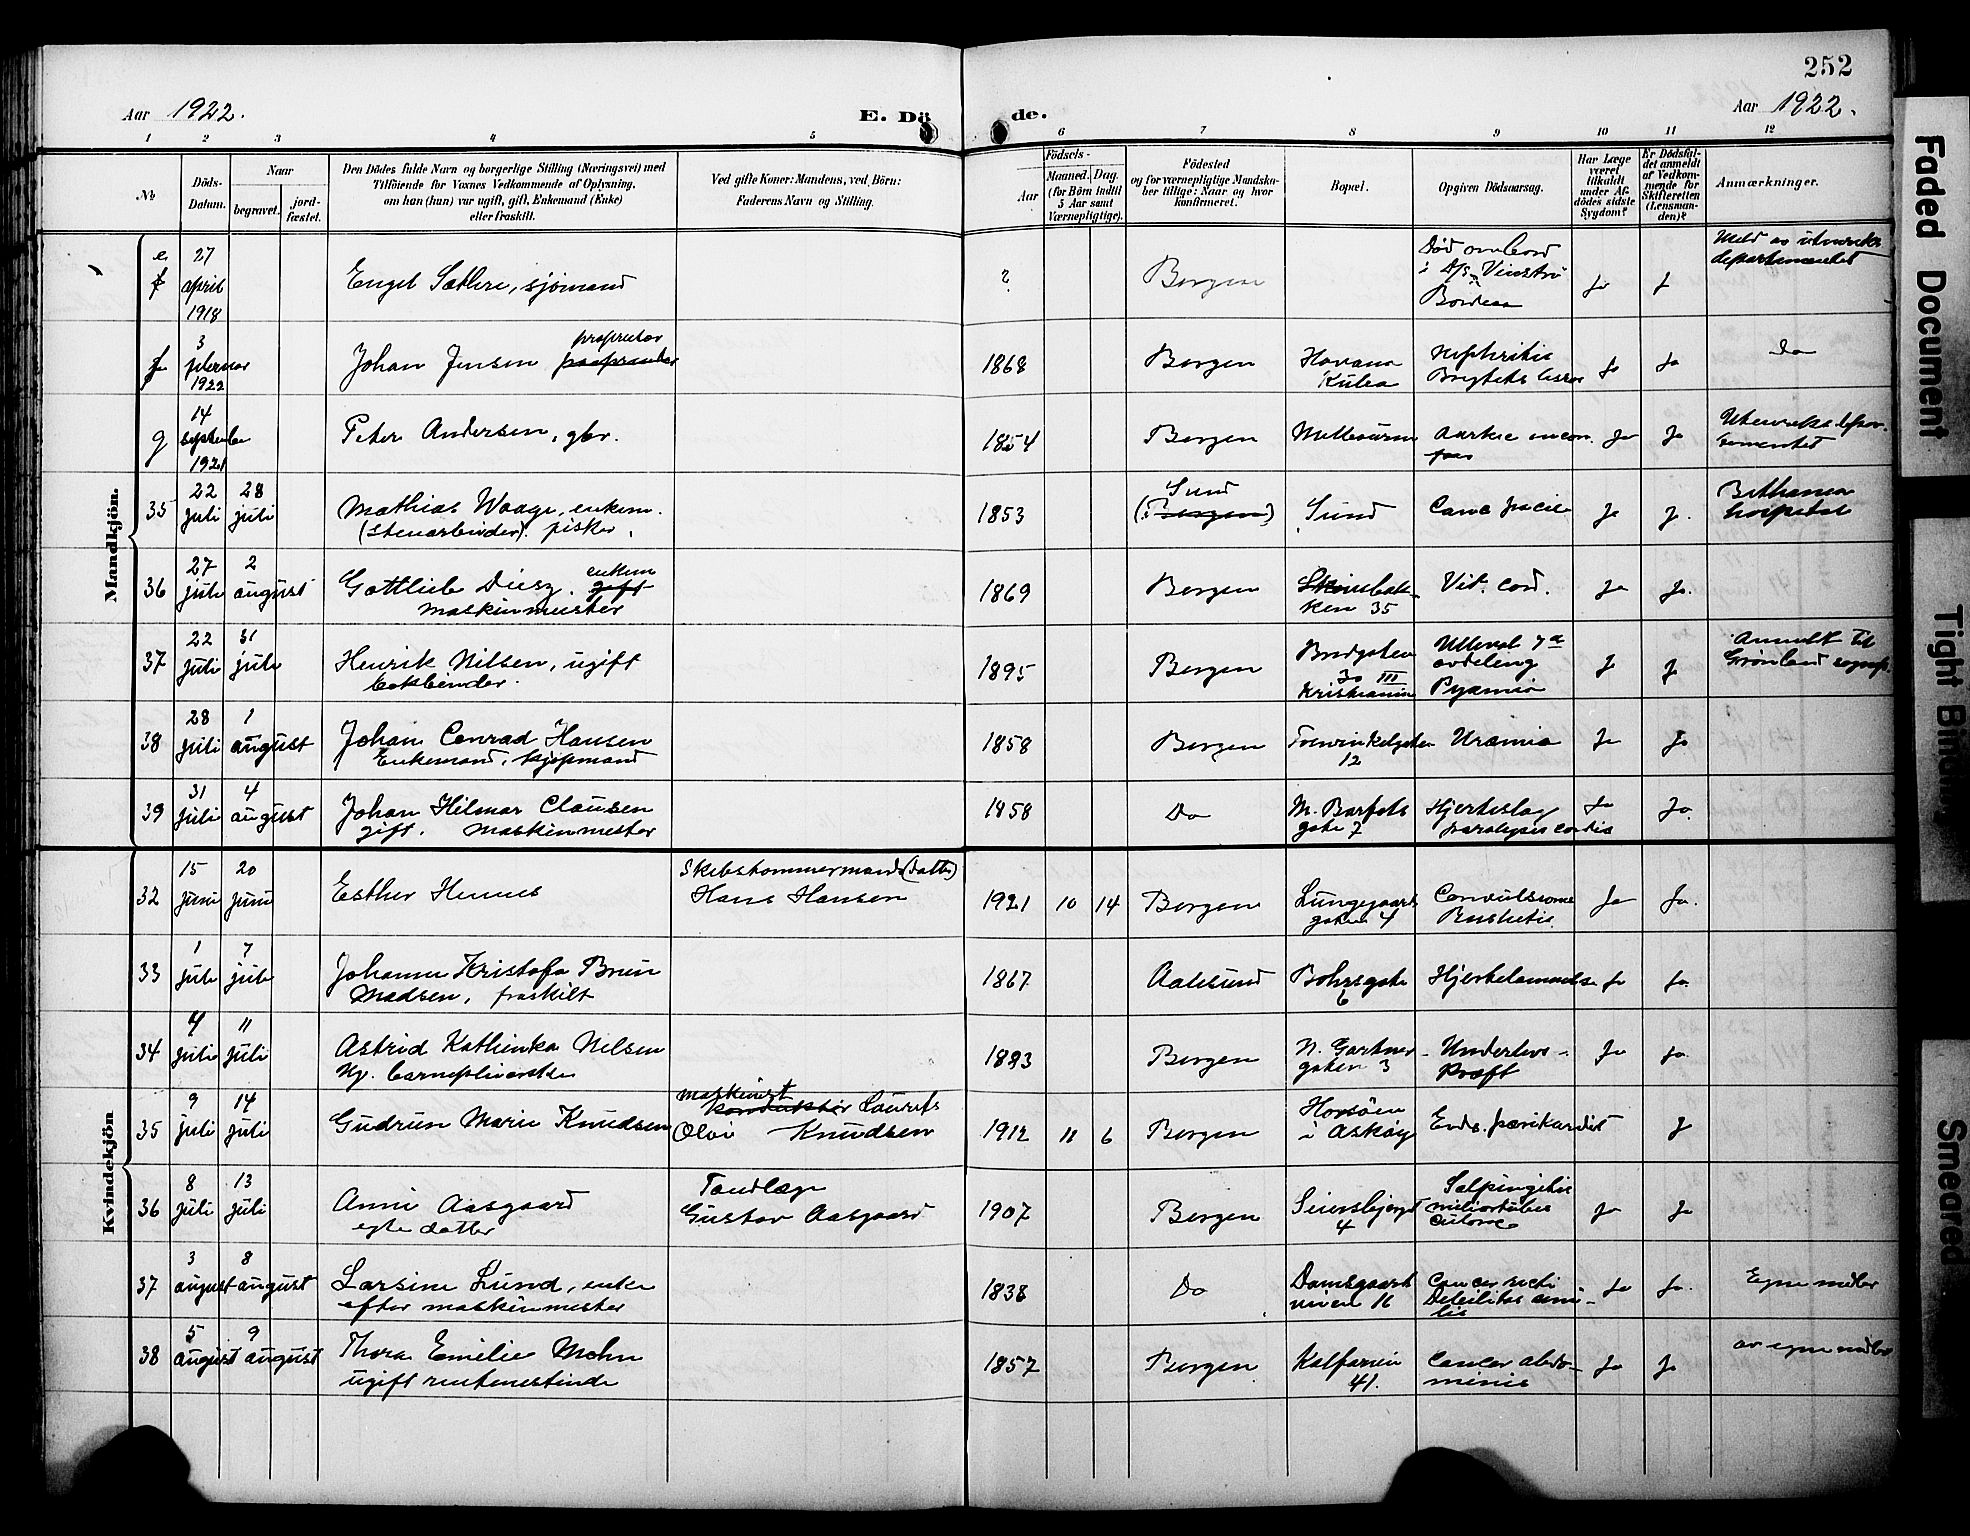 252
Aar 1922. E. Dö de. Aar 1922.
1 2 3 4 5 6 7 8 9 10 11 12
№ Döds-Datum. Naar begravet. jordfæstet.
Den Dödes fulde Navn og borgerlige Stilling (Næringsvei) med
Tilföiende for Voxnes Vedkommende af Oplysning,
om han (hun) var ugift, gift, Enkemand (Enke)
eller fraskilt.
Ved gifte Koner: Mandens, ved Börn:
Faderens Navn og Stilling.
Födsels-
Aar Maaned. Dag.
(for Börn indtil
5 Aar samt
Værnepligtige).
Födested
og for værnepligtige Mandskaber tillige: Naar og hvor
konfirmeret.
Bopæl.
Opgiven Dödsaarsag.
Har Læge
været
tilkaldt
under Afdödes sidste
Sygdom?
Er Dödsfaldet anmeldt
af Vedkommende for
Skifteretten
(Lensmanden)?
Anmærkninger.
Mandkjön.
e 27 april 1918 Engel Sætere, sjömand ? Bergen Död ombord i D/S Vinstra Ja J
f 3 februar 1922 Johan Jensen proprietær 1868 Bergen Havana Kuba Nephritis Ja Ja Do
g 14 september 1921 Peter Andersen, gbr. 1854 Bergen Melbourne Ja Ja
35 22 juli 28 juli Mathias Waage, enkem. (stenarbeider). fisker, 1853 Sund (Bergen) Sund Canc. faciei Ja J. Bethania hospital
36 27 juli 2 august Gottlieb Diesz. enkem gift maskinmester 1869 Bergen Skivebakken 35 Vit. cord. Ja Ja.
37 22 juli 31 juli Henrik Nilsen, ugift bokbinder. 1895 Bergen Bredgaten 30 III Kristiania Ulleval 7de avdeling Pyæmia J J Anmeldt til Grönland sognep.
38 28 juli 1 august Johan Conrad Hansen Enkemand, kjöpmand 1858 Bergen Forvinkelgaten 12 Uræmia Ja Ja
39 31 juli 4 august Johan Hilmar Clausen gift. maskinmester 1858 Do M. Barfots gate 7 Hjerteslag paralysis cordis Ja Ja.
Kvindekjön
32 15 juni 20 juni Esther Hennes Skibstömmermand (datter) Hans Hansen 1921 10 14 Bergen Lungegaards gaten 4 Convulsiones Rachitis. Ja Ja.
33 1 juli 7 juli Johanne Kristofa Brun Madsen, fraskilt 1867 Aalesund Bohrsgate 6 Hjertelammelse Ja Ja.
34 4 juli 11 juli Astrid Kathinka Nilsen Ug. barnepleierske 1893 Bergen N. Gartnergaten 3 Underlivskræft Ja Ja.
35 9 juli 14 juli Gudrun Marie Knudsen maskinist konduktör Laurits Olai Knudsen 1912 11 6 Bergen Horsöen i Asköy Endo. pærikardit J
36 8 juli 13 juli Anni Aasgaard egte datter Tandlæge Gustav Aasgaard 1907 Bergen Seiersbjerget 4 Salpingitis Ja Ja
37 3 august 8 august Larsine Lund, enke efter maskinmester 1838 Do Damsgaardsveien 16 Cancer recti Debilitas senilis Ja Ja. Egne midler
38 5 august 9 august Thora Emilie Mohn ugift rentenistinde 1857 Bergen Kalfarvei 41. Cancer abdominis Ja Ja av egne midler
Faded Document
Tight Binding
Smeared